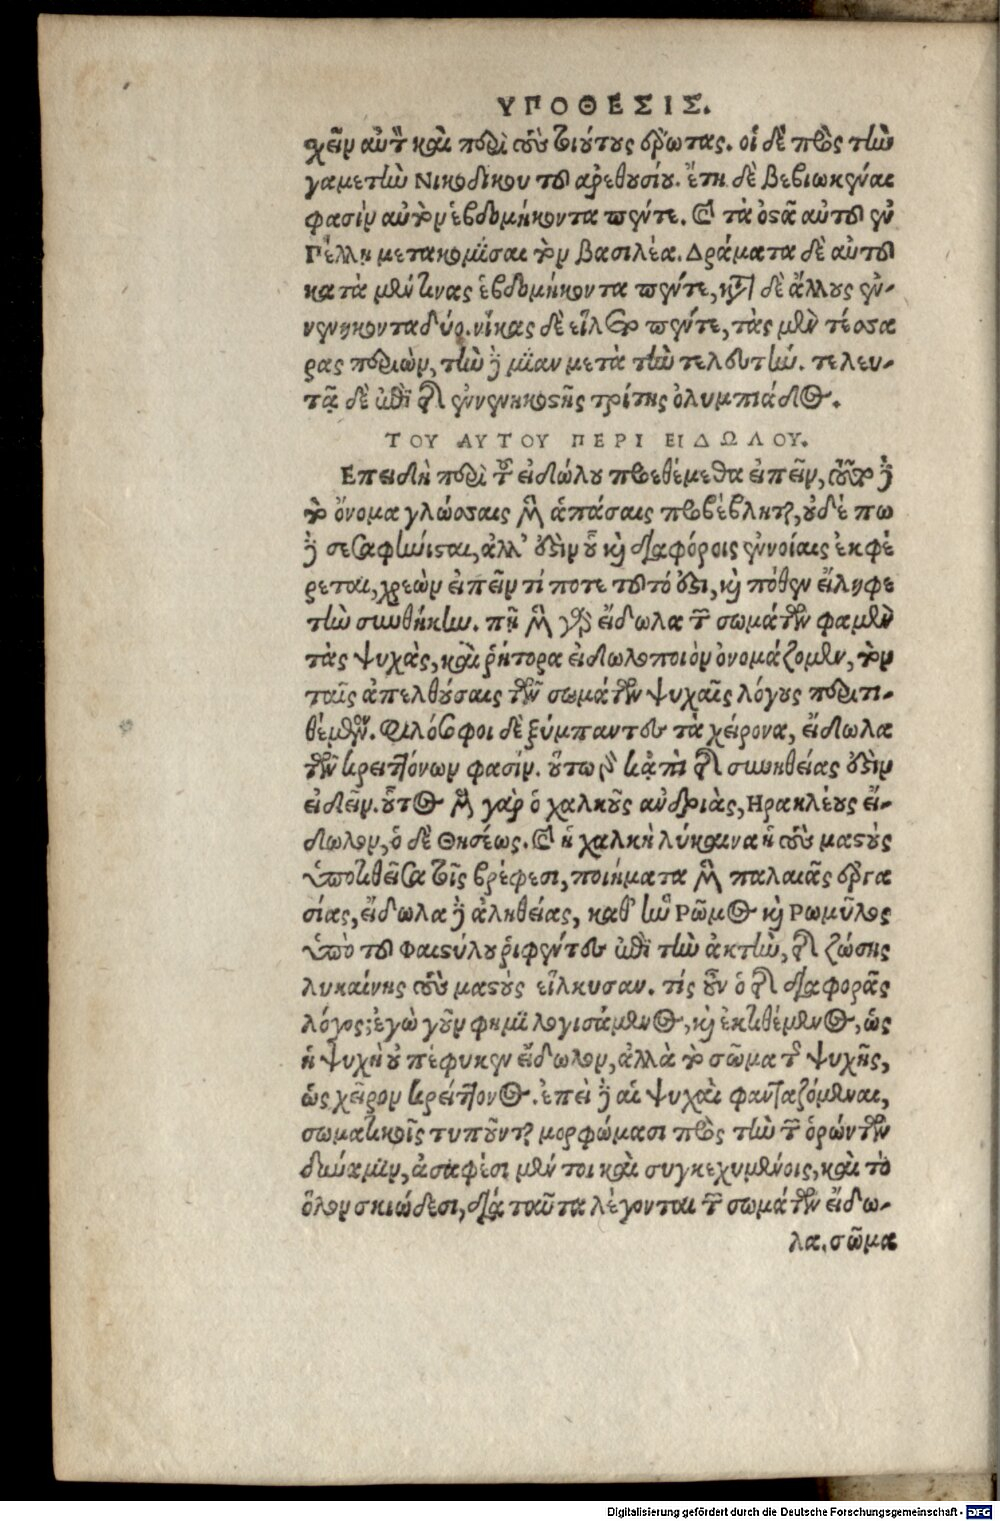 ΥΠΟΘΕΣΙΣ.
χεῖν αὐτὸν καὶ περὶ τοὺς τοιούτους ἔρωτας. οἱ δὲ πρὸς τὴν
γαμετὴν Νικοδίκου τοῦ ἀρεθουσίου. ἔτη δὲ βεβιωκέναι
φασὶν αὐτὸν ἑβδομήκοντα πέντε. καὶ τὰ ὀστᾶ αὐτοῦ ἐν
Πέλλῃ μετακομῖσαι τὸν βασιλέα. Δράματα δὲ αὐτοῦ
κατὰ μέν τινας ἑβδομήκοντα πέντε, κατὰ δὲ ἄλλους ἐν-
νενήκοντα δύο. νίκας δὲ εἵλετο πέντε, τὰς μὲν τέσσα
ρας περιὼν, τὴν δὲ μίαν μετὰ τὴν τελευτήν. τελευ-
τᾷ δὲ ἐπὶ τῆς ἐννενηκοστῆς τρίτης ὀλυμπιάδος.
ΤΟΥ ΑΥΤΟΥ ΠΕΡΙ ΕΙΔΩΛΟΥ.
Επειδὴ περὶ τοῦ εἰδώλου προεθέμεθα εἰπεῖν, τοῦτο δὲ
τὸ ὄνομα γλώσσαις μὲν ἁπάσαις προβέβληται, οὐδέ πω
δὲ σεσαφήνισται, ἀλλ' ἔστιν οὗ καὶ διαφόροις ἐννοίαις ἐκφέ
ρεται, χρεὼν εἰπεῖν τί ποτε τοῦτό ἐστι, καὶ πόθεν εἴληφε
τὴν συνθήκην. πῆ μὲν γὰρ εἴδωλα τῶν σωμάτων φαμὲν
τὰς ψυχὰς, καὶ ῥήτορα εἰδωλοποιὸν ὀνομάζομεν, τὸν
ταῖς ἀπελθούσαις τῶν σωμάτων ψυχαῖς λόγους περιτι-
θέμενον. Φιλόσοφοι δὲ ξύμπαντες τὰ χείρονα, εἴδωλα
τῶν κρειττόνων φασίν. οὕτω δὲ κἀπὶ τῆς συνηθείας ἔστιν
εἰδεῖν. οὗτος μὲν γὰρ ὁ χαλκοῦς ἀνδριὰς, Ηρακλέους εἴ-
δωλον, ὁ δὲ Θησέως. καὶ ἡ χαλκῆ λύκαινα ἡ τοὺς μαστοὺς
ὑποτιθεῖσα τοῖς βρέφεσι, ποιήματα μὲν παλαιᾶς ἐργα
σίας, εἴδωλα δὲ ἀληθείας, καθ' ἣν Ρῶμος καὶ Ρωμῦλος
ὑπὸ τοῦ Φαιστύλου ῥιφέντες ἐπὶ τὴν ἀκτὴν, τῆς ζώσης
λυκαίνης τοὺς μαστοὺς εἵλκυσαν. τίς οὖν ὁ τῆς διαφορᾶς
λόγος; ἐγὼ γοῦν φημὶ λογισάμενος, καὶ ἐκτιθέμενος, ὡς
ἡ ψυχὴ οὐ πέφυκεν εἴδωλον, ἀλλὰ τὸ σῶμα τῆς ψυχῆς,
ὡς χεῖρον κρείττονος. ἐπεὶ δὲ αἱ ψυχαὶ φανταζόμεναι,
σωματικοῖς τυποῦνται μορφώμασι πρὸς τὴν τῶν ὁρώντων
δύναμιν, ἀσαφέσι μέν τοι καὶ συγκεχυμένοις, καὶ τὸ
ὅλον σκιώδεσι, διὰ ταῦτα λέγονται τῶν σωμάτων εἴδω-
λα. σῶμα
Digitalisierung gefördert durch die Deutsche Forschungsgemeinschaft - DFG